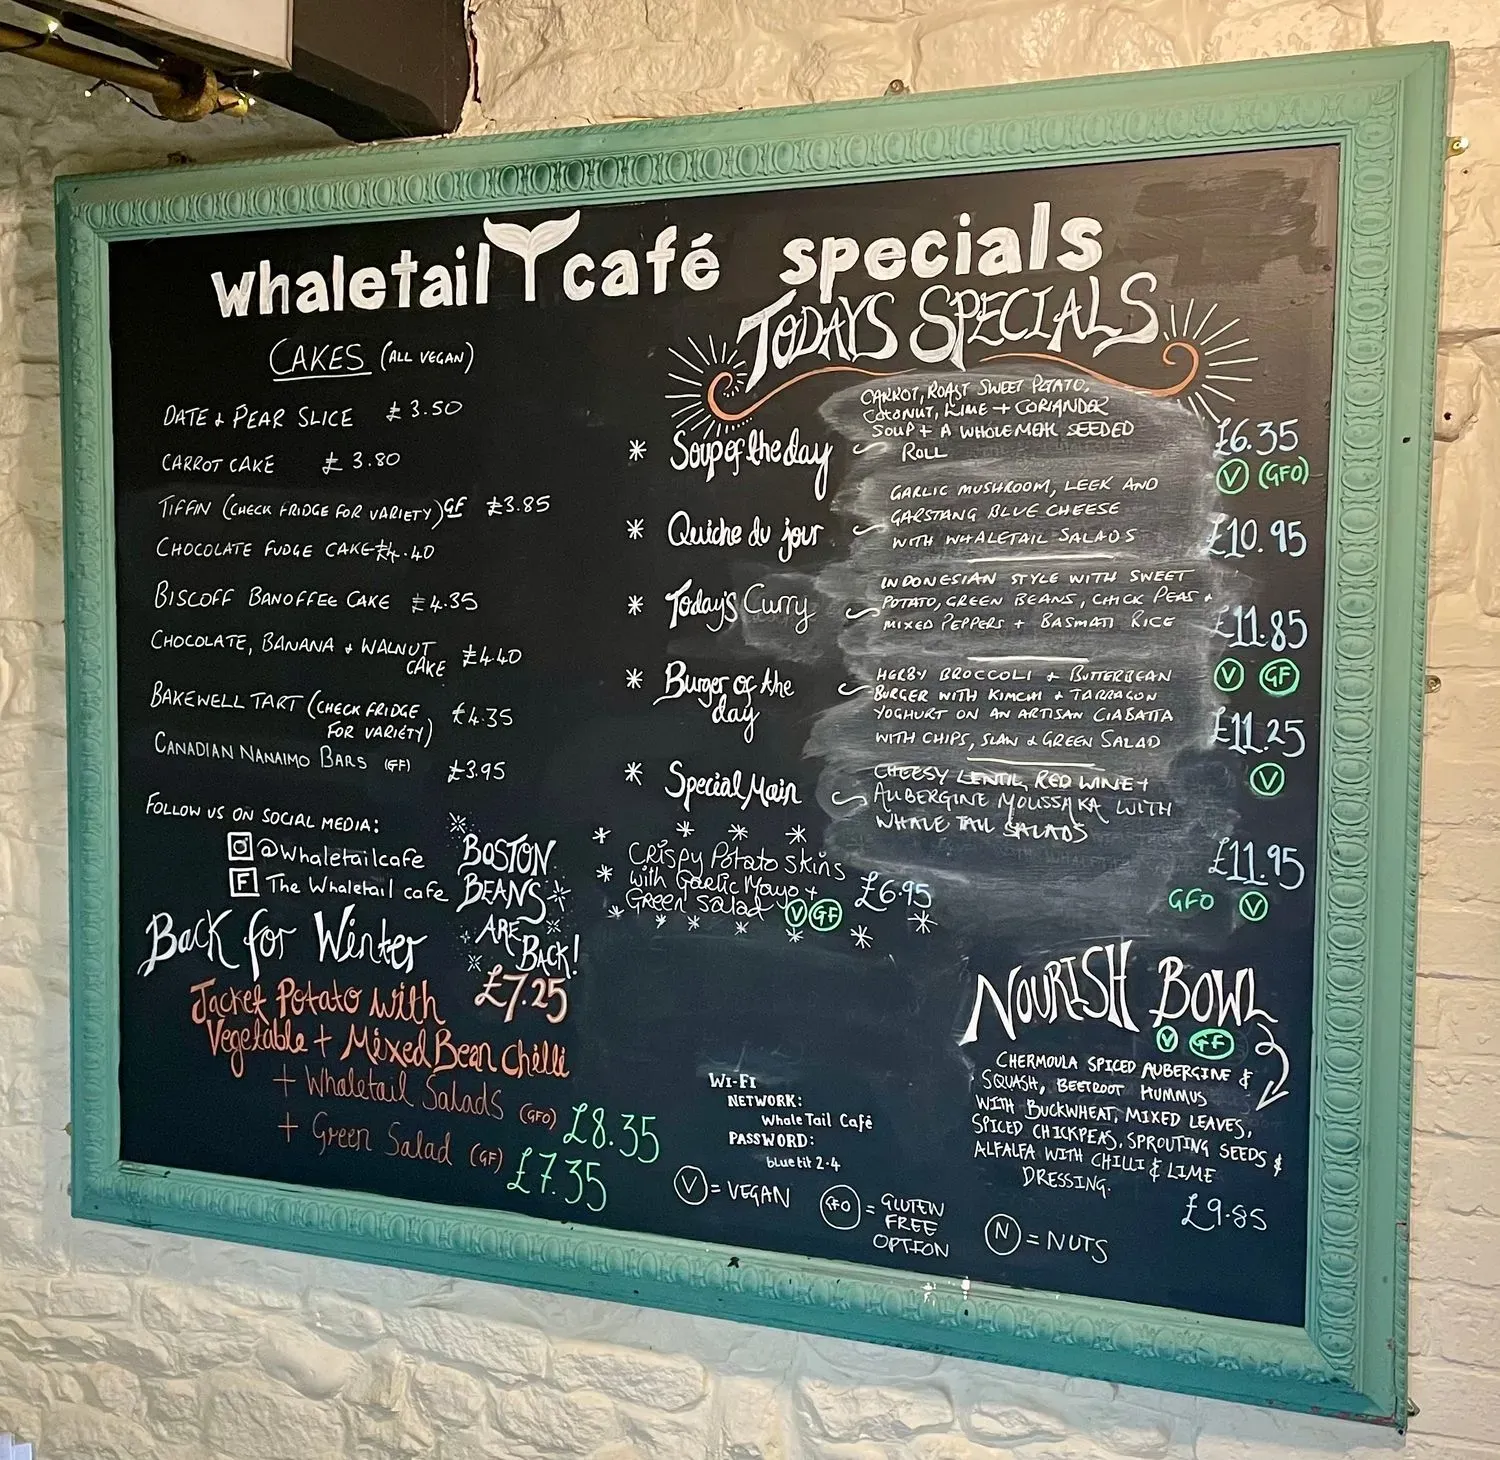 whaletail café specials
CAKES (ALL VEGAN)
DATE & PEAR SLICE £3.50
CARROT CAKE £3.80
TIFFIN (CHECK FRIDGE FOR VARIETY) GF £3.85
CHOCOLATE FUDGE CAKE £4.40
BISCOFF BANOFFEE CAKE £4.35
CHOCOLATE, BANANA & WALNUT
CAKE £4.40
BAKEWELL TART (CHECK FRIDGE
FOR VARIETY) £4.35
CANADIAN NANAIMO BARS (GF) £3.95
FOLLOW US ON SOCIAL MEDIA:
@whaletailcafe
F The Whaletail cafe
BOSTON
BEANS
ARE
BACK!
£7.25
Back for Winter
Jacket Potato with
Vegetable + Mixed Bean Chilli
+ Whaletail Salads (GFO) £8.35
+ Green Salad (GF) £7.35
TODAYS SPECIALS
* Soup of the day
CARROT, ROAST SWEET POTATO,
COCONUT, LIME + CORIANDER
SOUP + A WHOLEMEAL SEEDED
ROLL
£6.35
V (GFO)
* Quiche du jour
GARLIC MUSHROOM, LEEK AND
GARSTANG BLUE CHEESE
WITH WHALETAIL SALADS
£10.95
* Today's Curry
INDONESIAN STYLE WITH SWEET
POTATO, GREEN BEANS, CHICK PEAS +
MIXED PEPPERS + BASMATI RICE
£11.85
V GF
* Burger of the
day
HERBY BROCCOLI + BUTTERBEAN
BURGER WITH KIMCHI + TARRAGON
YOGHURT ON AN ARTISAN CIABATTA
WITH CHIPS, SLAW & GREEN SALAD
£11.25
V
* Special Main
CHEESY LENTIL, RED WINE +
AUBERGINE MOUSSAKA WITH
WHALE TAIL SALADS
£11.95
GFO V
Crispy Potato Skins
with Garlic Mayo +
Green Salad V GF
£6.95
NOURISH BOWL
V GF
CHERMOULA SPICED AUBERGINE &
SQUASH, BEETROOT HUMMUS
WITH BUCKWHEAT, MIXED LEAVES,
SPICED CHICKPEAS, SPROUTING SEEDS &
ALFALFA WITH CHILLI & LIME
DRESSING.
£9.85
WI-FI
NETWORK:
Whale Tail Café
PASSWORD:
bluetit 2.4
V = VEGAN
GFO = GLUTEN
FREE
OPTION
N = NUTS